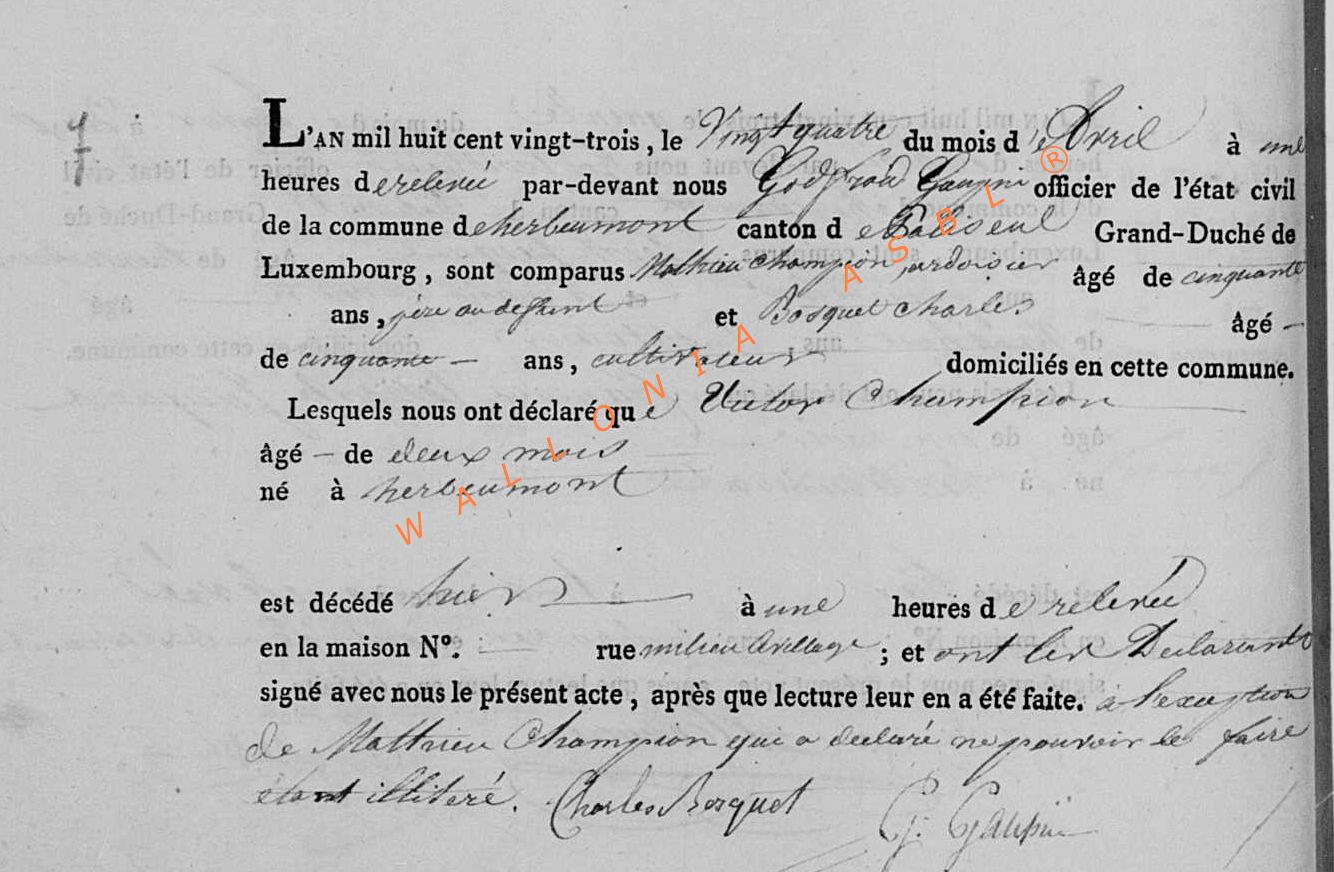 7
L'AN mil huit cent vingt-trois, le Vingt quatre du mois d'Avril à une
heures de relevé par-devant nous officier de l'état civil
de la commune de herbeumont canton de Paliseul Grand-Duché de
Luxembourg, sont comparus Mathieu Champion ardoisier âgé de cinquante
ans, père au defunt et Bosquet Charles âgé —
de cinquante — ans, cultivateur domiciliés en cette commune.
Lesquels nous ont déclaré que Victor Champion
âgé — de deux mois
né à herbeumont
est décédé hier à une heures de relevée
en la maison N°. rue milieu village ; et ont les Declarants
signé avec nous le présent acte, après que lecture leur en a été faite. à l'exception
de Mathieu Champion qui a declaré ne pouvoir le faire
étant illiteré. Charles Bosquet G. Gaupin
WALLONIA ASBL ®